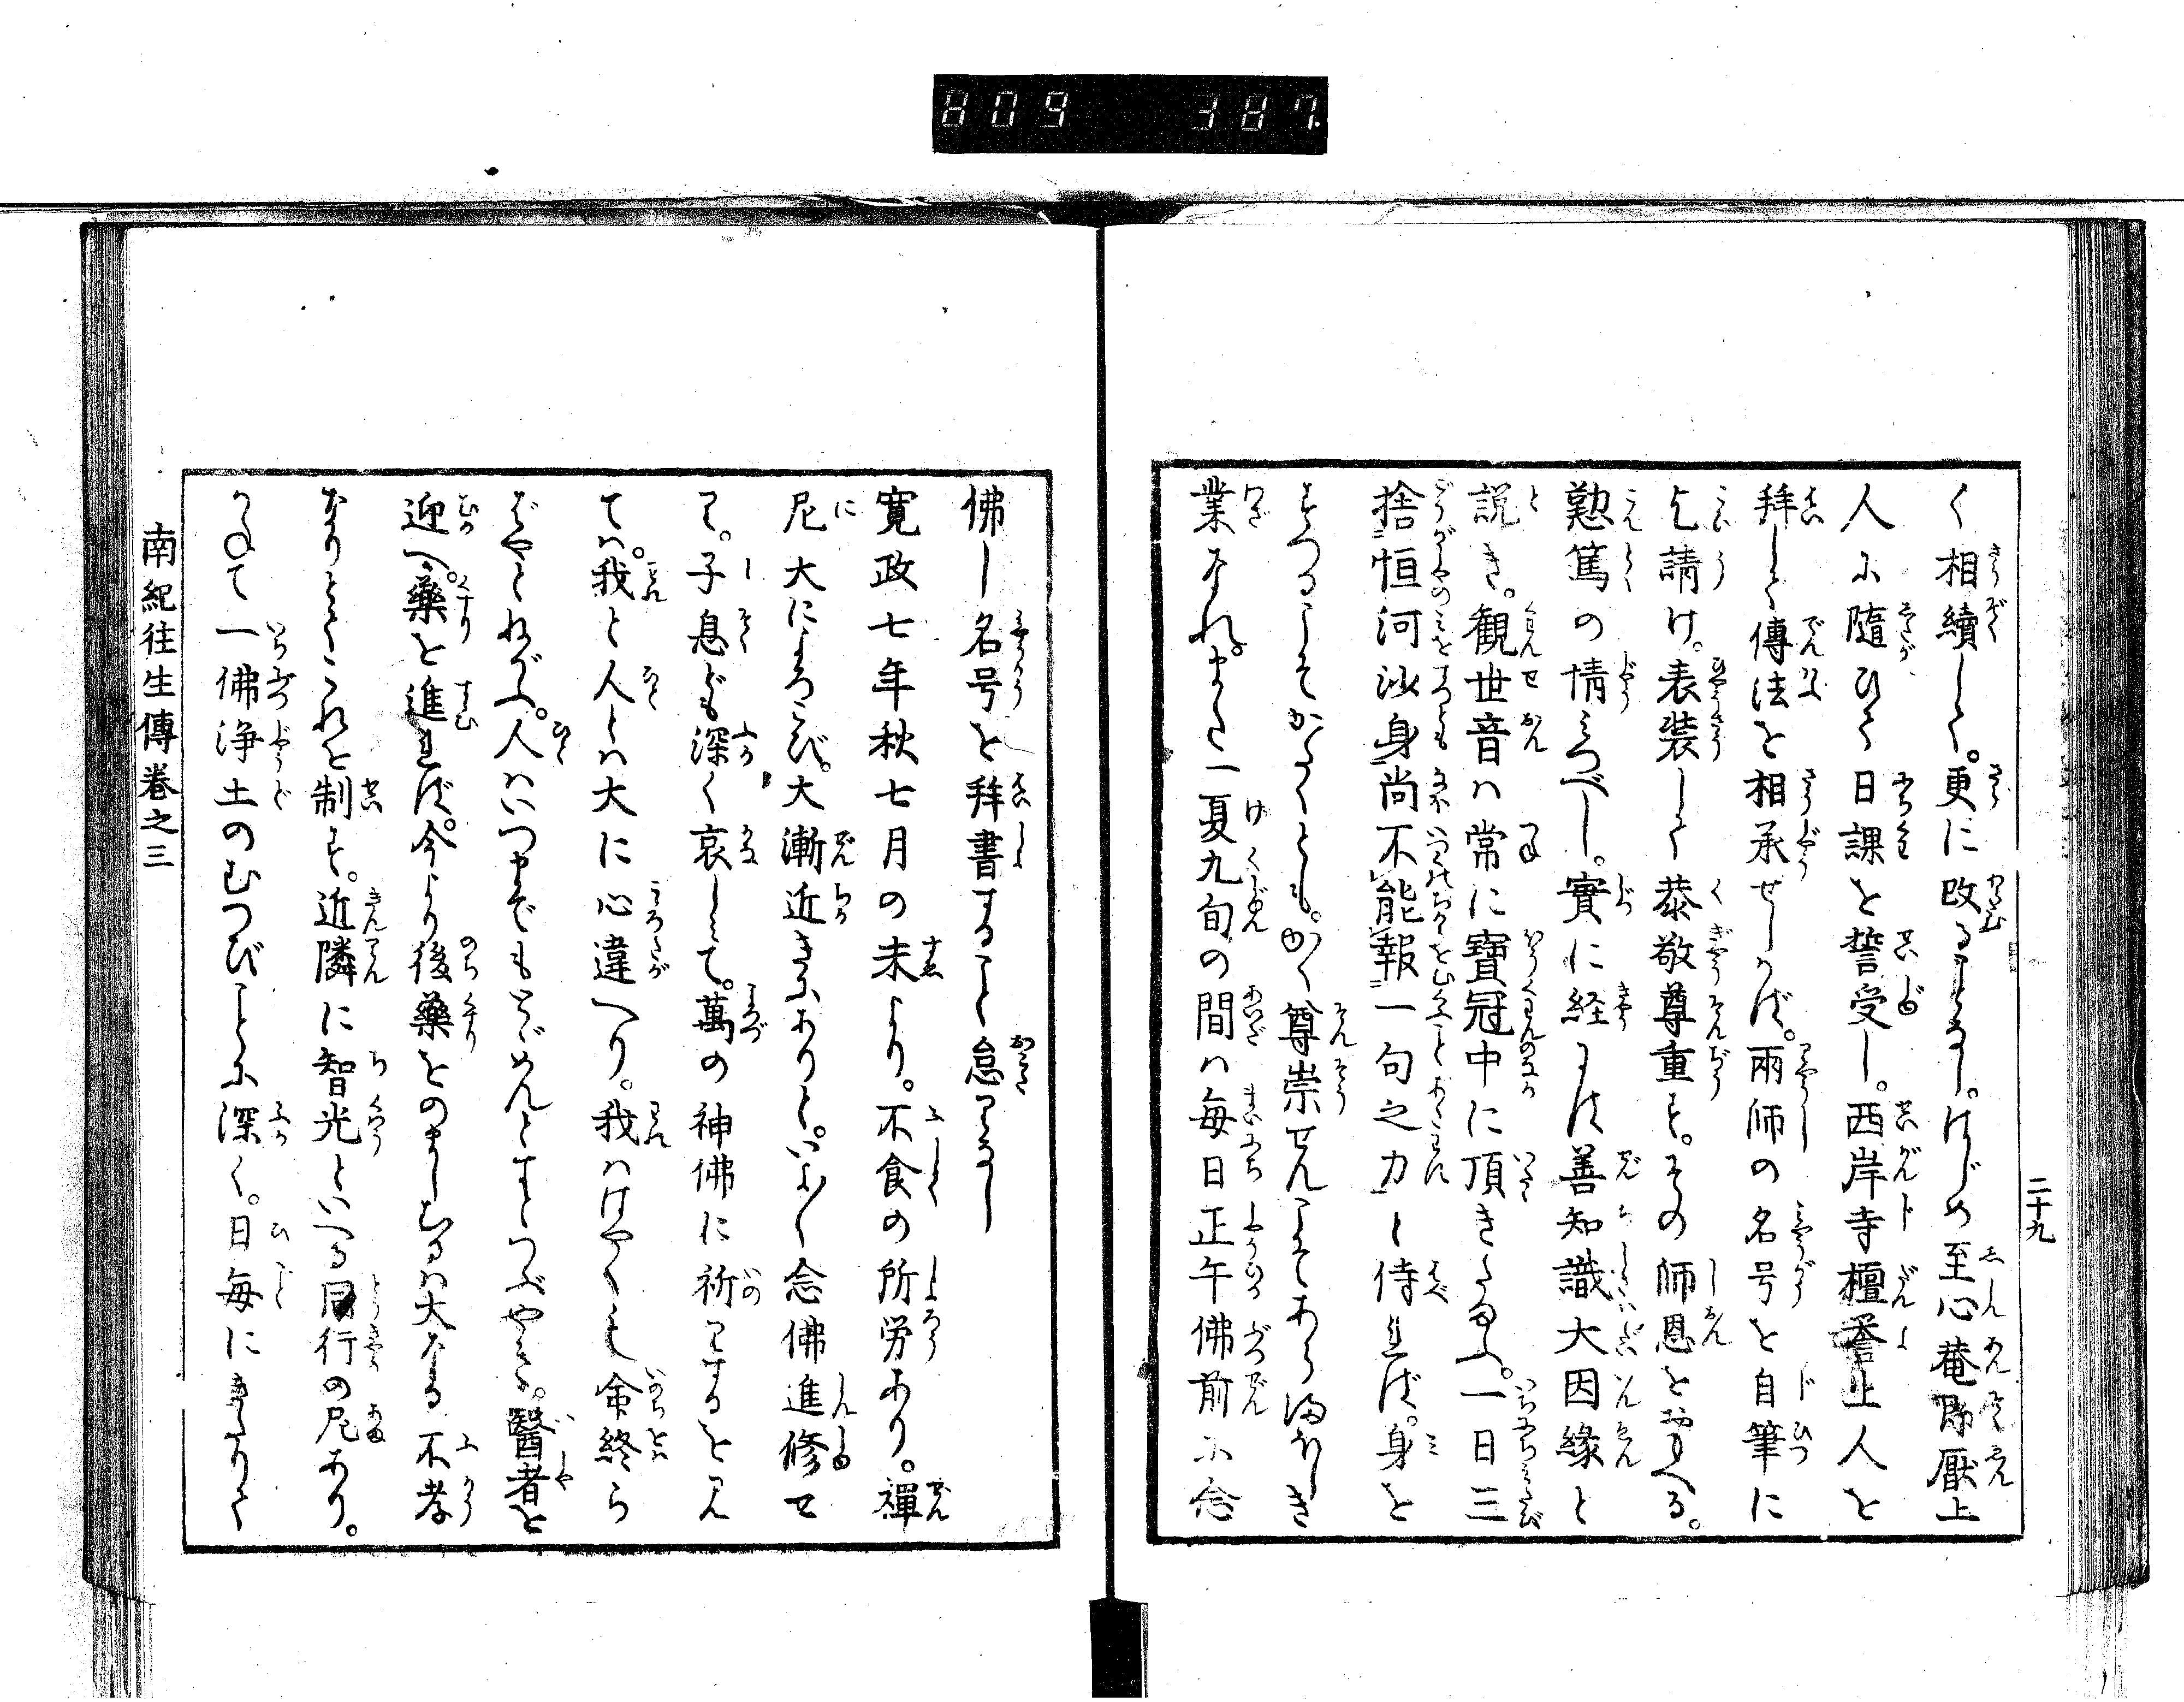 809 387.
二十九
く相續して。更に改ることなし。はじめ至心菴勝厭上
人に隨ひて日課を誓受し。西岸寺檀譽上人を
拜して傳法を相承せしかば。兩師の名号を自筆に
乞請け。表裝して恭敬尊重す。その師恩をおもへる。
懃篤の情みつべし。實に経には善知識大因縁と
説き。観世音は常に寶冠中に頂きたまふ。一日三
捨恒河沙身尚不能報一句之力と侍れば。身を
すつるこそかたくとも。かく尊崇せんこそあらまほしき
業なれ。また一夏九旬の間は毎日正午佛前に念
佛し名号を拜書すること怠りなし
寛政七年秋七月の末より。不食の所労あり。禪
尼大によろこび。大漸近きにありと。いよ〱念佛進修せ
り。子息ども深く哀しみて。萬の神佛に祈りするをみ
ては。我と人とは大に心違へり。我ははやくも命終ら
ばやとねがふ。人はいつまでもとゞめんとすとつぶやきき。醫者を
迎へ。藥を進れば。今より後藥をのましむるは大なる不孝
なりとてこれを制す。近隣に智光といへる同行の尼あり。
かねて一佛浄土のむつびことに深く。日毎にきたりて
南紀往生傳卷之三